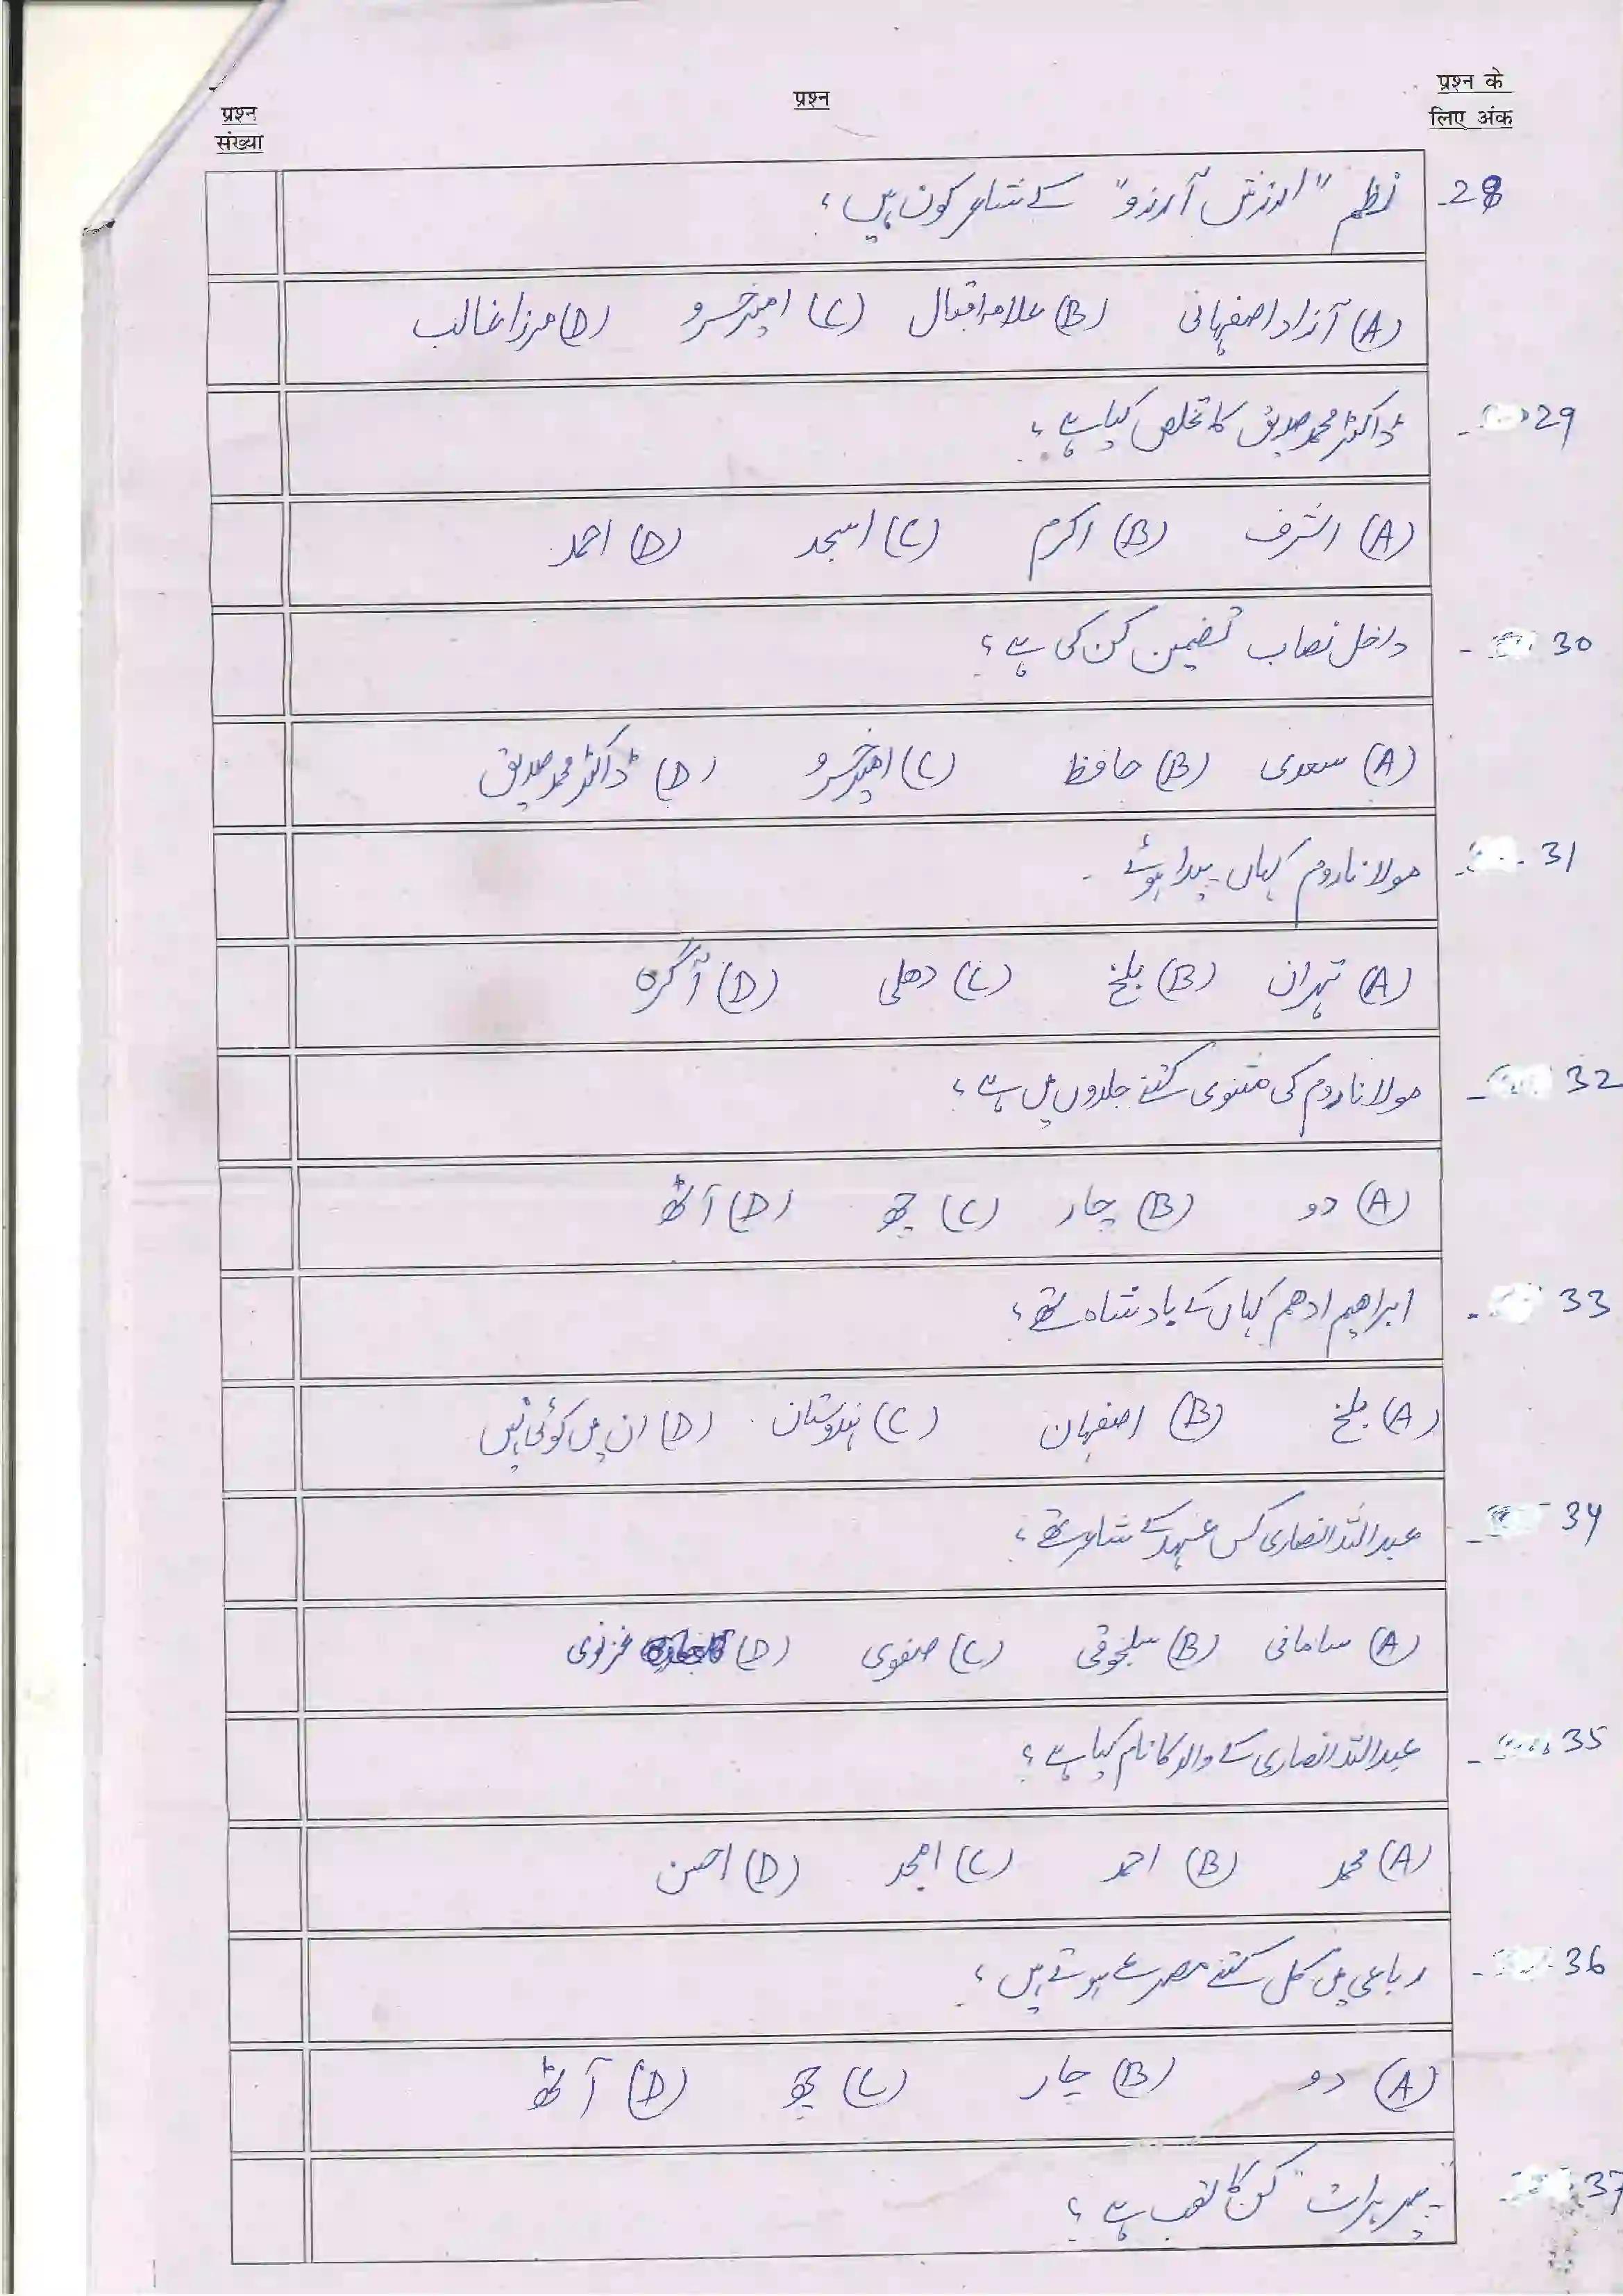 प्रश्न संख्या
प्रश्न
प्रश्न के लिए अंक
28- نظم "ارزش آرزو" کے شاعر کون ہیں؟
(A) آزاد اصفہانی (B) علامہ اقبال (C) امیر خسرو (D) مرزا غالب
29- ڈاکٹر محمد صدیق کا تخلص کیا ہے؟
(A) اشرف (B) اکرم (C) اسجد (D) احمد
30- داخل نصاب تضمین کن کی ہے؟
(A) سعدی (B) حافظ (C) امیر خسرو (D) ڈاکٹر محمد صدیق
31- مولانا روم کہاں پیدا ہوئے -
(A) تہران (B) بلخ (C) دھلی (D) آگرہ
32- مولانا روم کی مثنوی کتنے جلدوں میں ہے؟
(A) دو (B) چار (C) چھ (D) آٹھ
33- ابراھیم ادھم کہاں کے بادشاہ تھے؟
(A) بلخ (B) اصفہان (C) ہندوستان (D) ان میں کوئی نہیں
34- عبداللہ انصاری کس عہد کے شاعر تھے؟
(A) سامانی (B) سلجوقی (C) صفوی (D) غزنوی
35- عبداللہ انصاری کے والد کا نام کیا ہے؟
(A) محمد (B) احمد (C) امجد (D) احسن
36- رباعی میں کل کتنے مصرعے ہوتے ہیں؟
(A) دو (B) چار (C) چھ (D) آٹھ
37- "پیر ہرات" کن کا لقب ہے؟